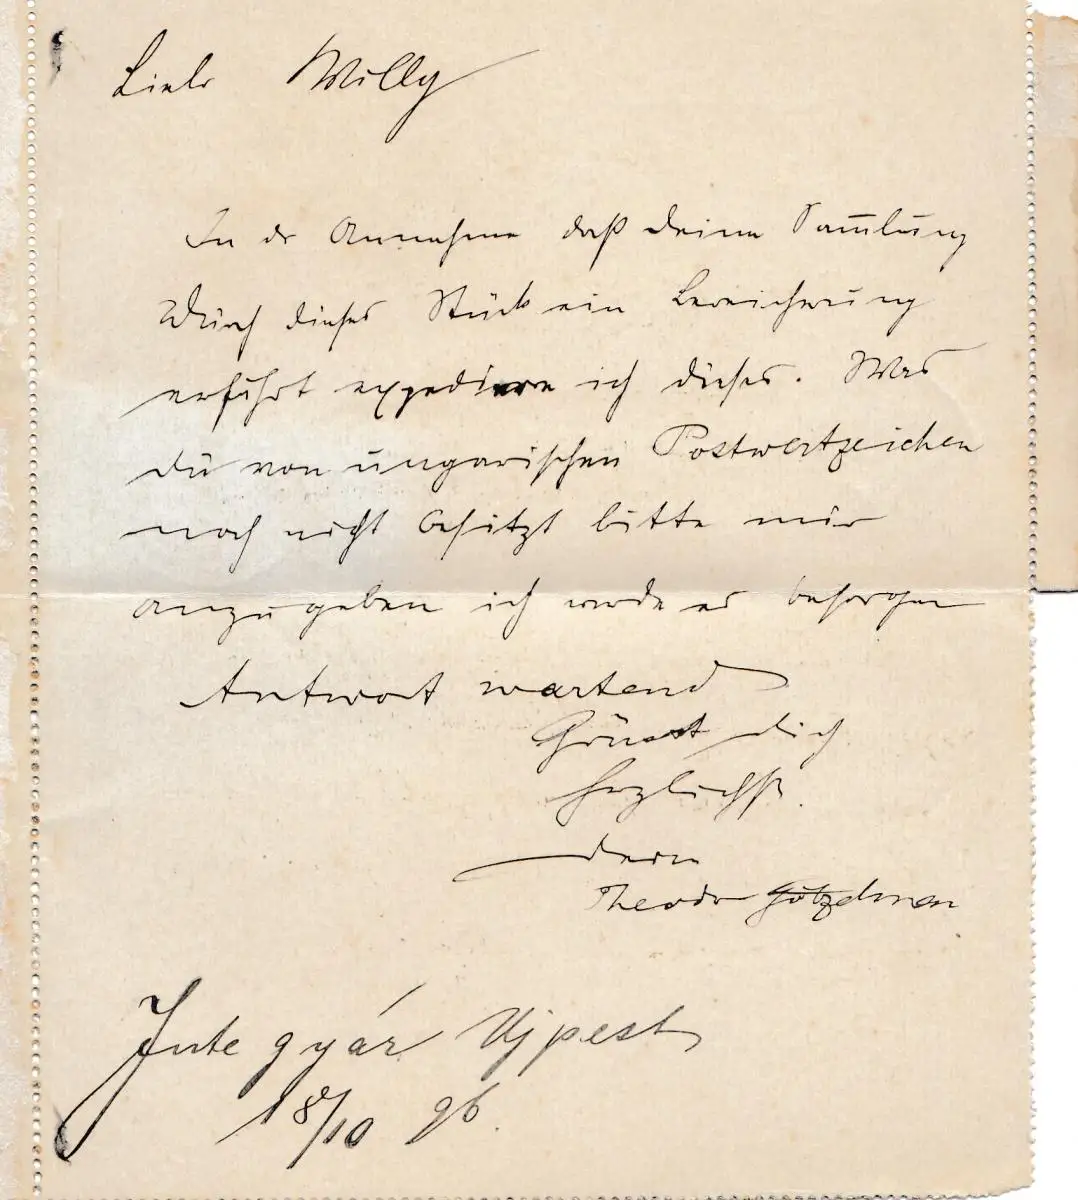 Lieber Willy
In der Annahme daß deine Sammlung
durch dieses Stück ein Bereicherung
erfährt expediere ich dieses. Was
du von ungarischen Postwertzeichen
noch nicht besitzt bitte mir
anzugeben ich werde es besorgen
Antwort wartend
Grüsst dich
herzlichst.
dein
Theodor Götzelman
Jute gyár Ujpest
18/10 96.